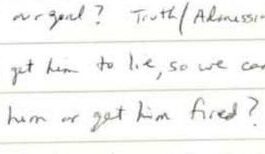 our goal? Truth/Admission
get him to lie, so we can
him or get him fired?